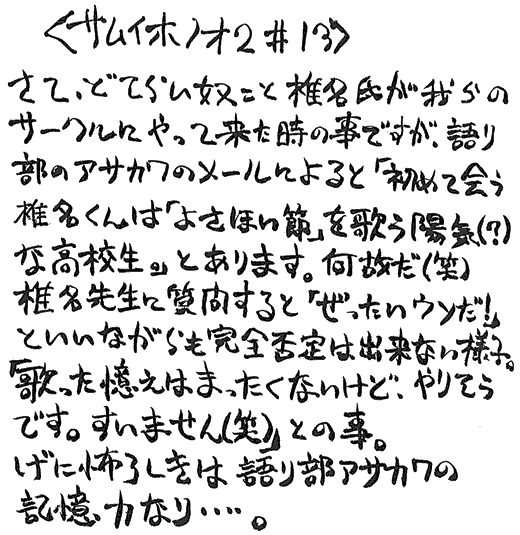 〈サムイホノオ2#13〉
さて、どてらい奴こと椎名氏が我らの
サークルにやって来た時の事ですが、語り
部のアサカワのメールによると「初めて会う
椎名くんは「よさほい節」を歌う陽気(?)
な高校生。」とあります。何故だ(笑)
椎名先生に質問すると「ぜったいウソだ!」
といいながらも完全否定は出来ない様子。
「歌った憶えはまったくないけど、やりそう
です。すいません(笑)」との事。
げに怖ろしきは語り部アサカワの
記憶力なり‥‥。